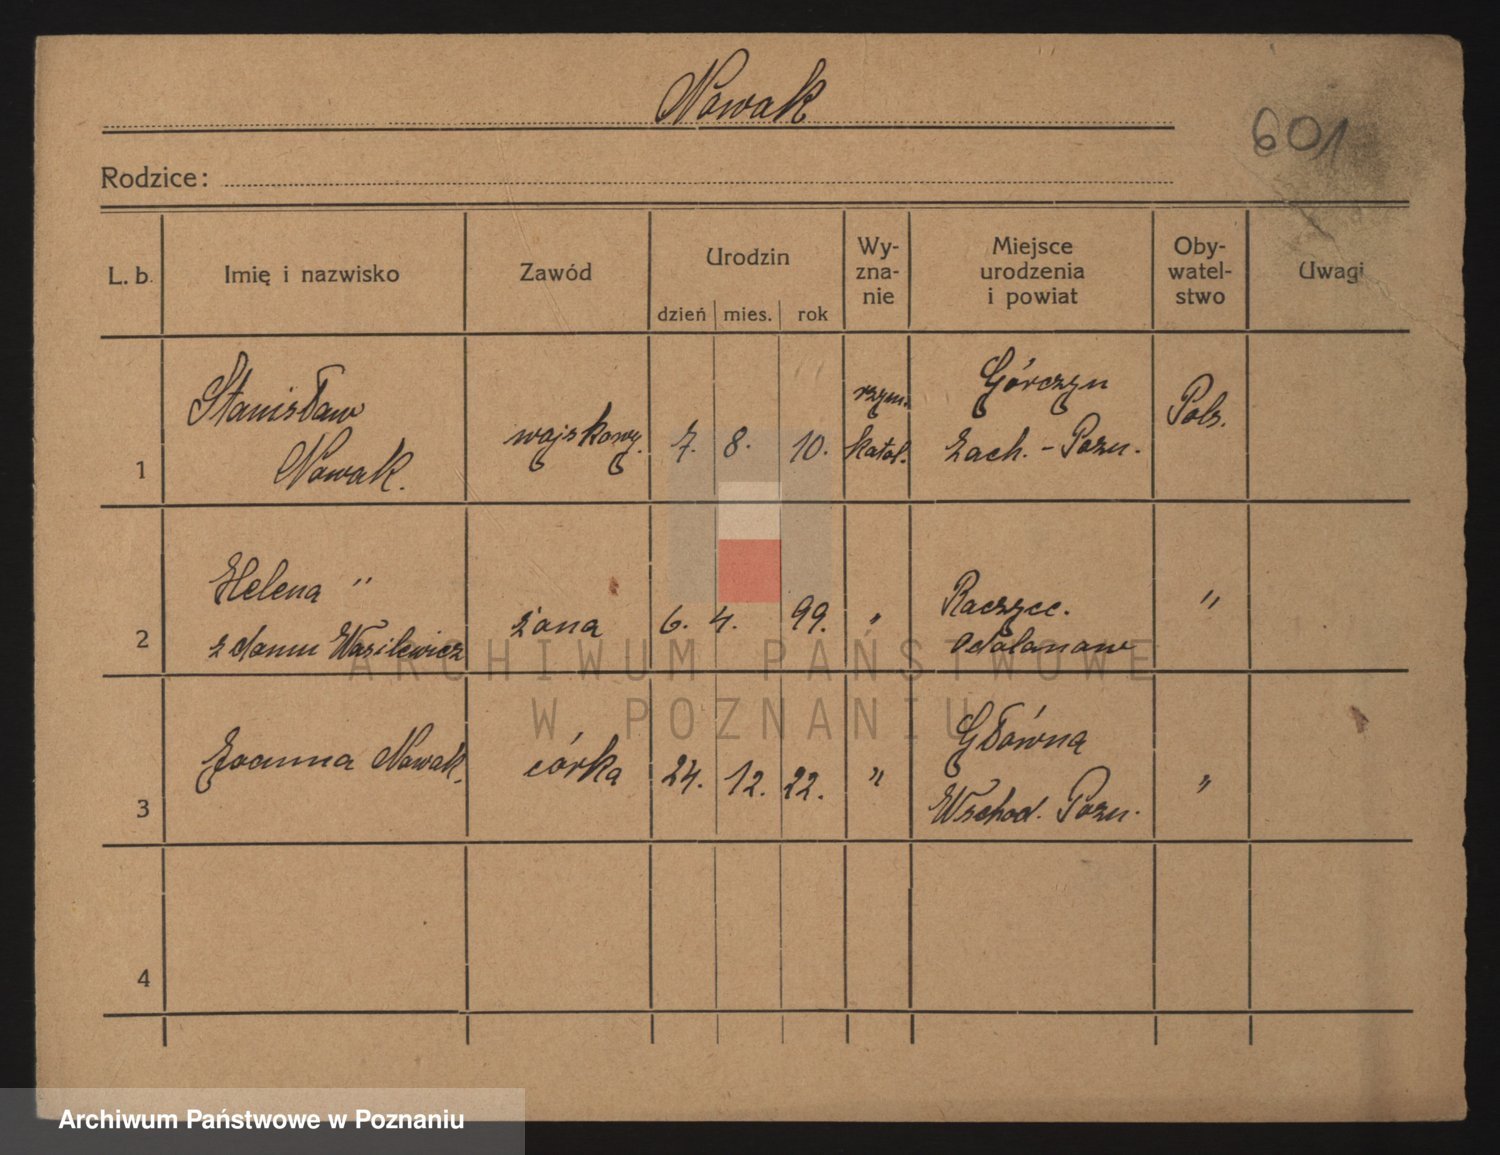 Nowak
601
Rodzice:
L. b. Imię i nazwisko Zawód Urodzin dzień mies. rok Wy-zna-nie Miejsce urodzenia i powiat Oby-watel-stwo Uwagi
1 Stanisław Nowak. wojskowy. 7. 8. 10. rzym. katol. Górczyn Zach. - Pozn. Pols.
2 Helena " z domu Wasilewicz żona 6. 4. 99. " Raczyce. Odolanow "
3 Joanna Nowak. córka 24. 12. 22. " Główna Wschod. Pozn. "
4
ARCHIWUM PAŃSTWOWE
W POZNANIU
Archiwum Państwowe w Poznaniu